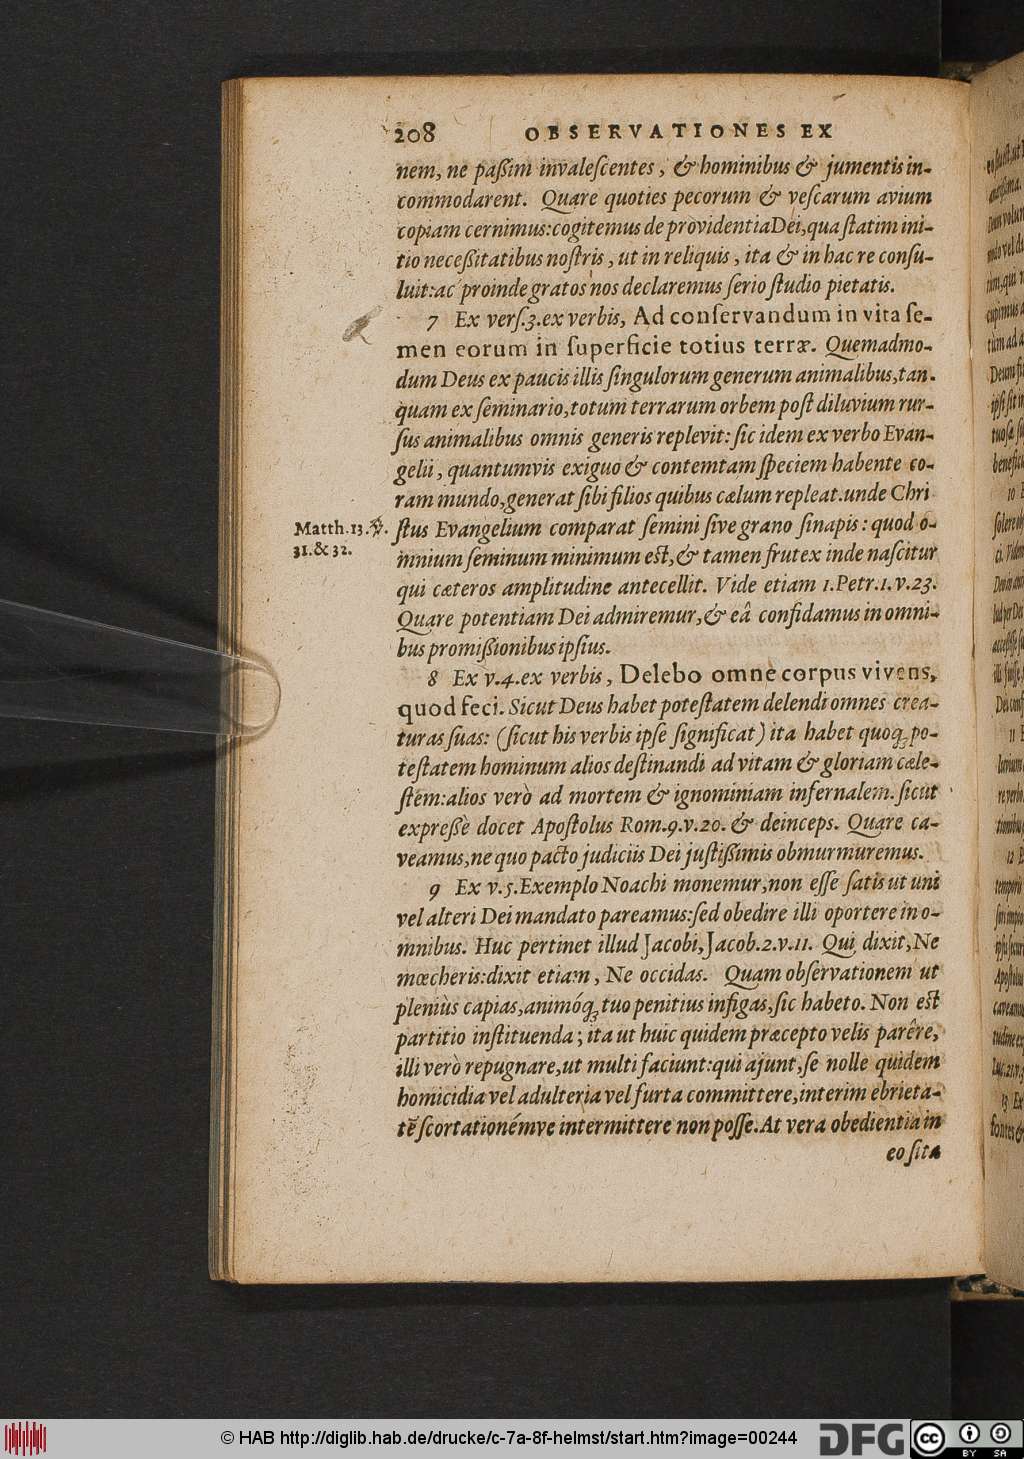 208 OBSERVATIONES EX
nem, ne paßim invaleſcentes, & hominibus & jumentis in-
commodarent. Quare quoties pecorum & veſcarum avium
copiam cernimus:cogitemus de providentia Dei,qua ſtatim ini-
tio neceßitatibus noſtris, ut in reliquis, ita & in hac re conſu-
luit:ac proinde gratos nos declaremus ſerio ſtudio pietatis.
7 Ex verſ.3.ex verbis, Ad conſervandum in vita ſe-
men eorum in ſuperficie totius terræ. Quemadmo-
dum Deus ex paucis illis ſingulorum generum animalibus,tan-
quam ex ſeminario,totum terrarum orbem poſt diluvium rur-
ſus animalibus omnis generis replevit: ſic idem ex verbo Evan-
gelii, quantumvis exiguo & contemtam ſpeciem habente co-
ram mundo,generat ſibi filios quibus cælum repleat.unde Chri
Matth.13.℣. ſtus Evangelium comparat ſemini ſive grano ſinapis: quod o-
31.& 32. mnium ſeminum minimum eſt,& tamen frutex inde naſcitur
qui cæteros amplitudine antecellit. Vide etiam 1.Petr.1.v.23.
Quare potentiam Dei admiremur,& eâ confidamus in omni-
bus promißionibus ipſius.
8 Ex v.4.ex verbis, Delebo omne corpus vivens,
quod feci. Sicut Deus habet poteſtatem delendi omnes crea-
turas ſuas: (ſicut his verbis ipſe ſignificat) ita habet quoqꝫ po-
teſtatem hominum alios deſtinandi ad vitam & gloriam cæle-
ſtem:alios verò ad mortem & ignominiam infernalem. ſicut
expreßè docet Apoſtolus Rom.9.v.20. & deinceps. Quare ca-
veamus,ne quo pacto judiciis Dei juſtißimis obmurmuremus.
9 Ex v.5.Exemplo Noachi monemur,non eſſe ſatis ut uni
vel alteri Dei mandato pareamus:ſed obedire illi oportere in o-
mnibus. Huc pertinet illud Jacobi,Jacob.2.v.11. Qui dixit,Ne
mœcheris:dixit etiam, Ne occidas. Quam obſervationem ut
pleniùs capias,animóqꝫ tuo penitius infigas,ſic habeto. Non eſt
partitio inſtituenda; ita ut huic quidem præcepto velis parêre,
illi verò repugnare,ut multi faciunt:qui ajunt,ſe nolle quidem
homicidia vel adulteria vel furta committere,interim ebrieta-
tẽ ſcortationémve intermittere non poſſe.At vera obedientia in
eo ſita
© HAB http://diglib.hab.de/drucke/c-7a-8f-helmst/start.htm?image=00244
DFG
cc
BY SA